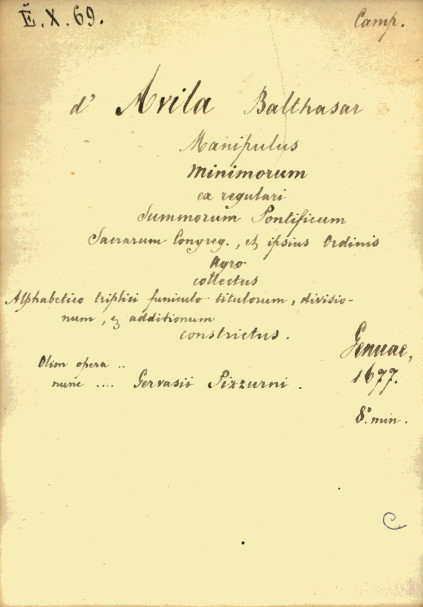 É.X.69. Camp.
d' Avila Balthasar
Manipulus
Minimorum
ex regulari
Summorum Pontificum
Sacrarum Congreg., et ipsius Ordinis
Agro
collectus
Alphabetico triplici funiculo titulorum, divisio-
num, & additionum
constrictus.
Genuae,
1677.
8º min.
Olim opera ..
nunc .... Gervasii Pizzurni.
C